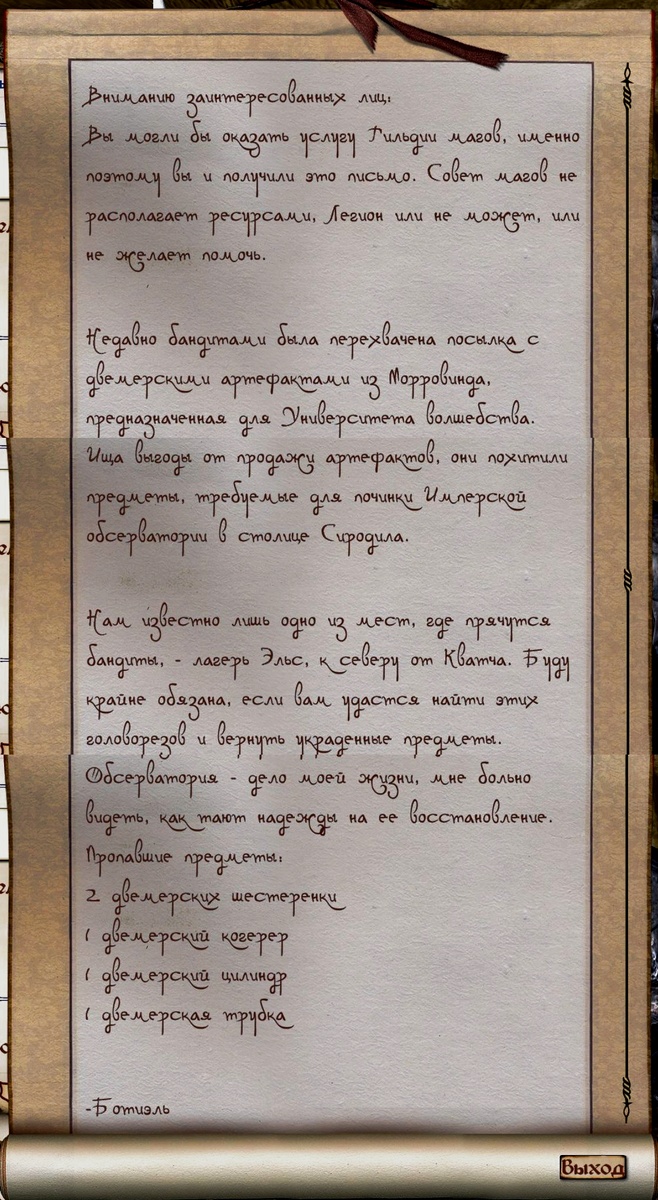 Вниманию заинтересованных лиц:
Вы могли бы оказать услугу Гильдии магов, именно
поэтому вы и получили это письмо. Совет магов не
располагает ресурсами, Легион или не может, или
не желает помочь.
Недавно бандитами была перехвачена посылка с
двемерскими артефактами из Морровинда,
предназначенная для Университета волшебства.
Ища выгоды от продажи артефактов, они похитили
предметы, требуемые для починки Имперской
обсерватории в столице Сиродила.
Нам известно лишь одно из мест, где прячутся
бандиты, - лагерь Эльс, к северу от Кватча. Буду
крайне обязана, если вам удастся найти этих
головорезов и вернуть украденные предметы.
Обсерватория - дело моей жизни, мне больно
видеть, как тают надежды на ее восстановление.
Пропавшие предметы:
2 двемерских шестеренки
1 двемерский когерер
1 двемерский цилиндр
1 двемерская трубка
-Ботиэль
Выход